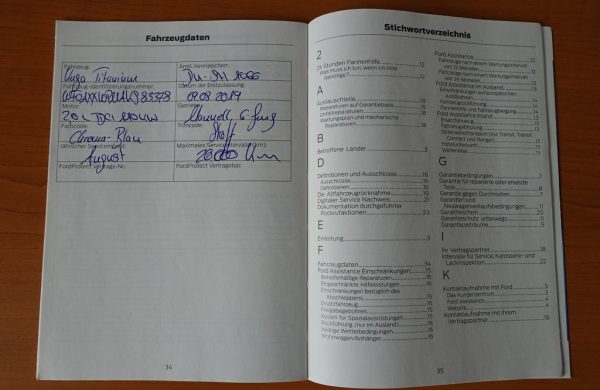 Fahrzeugdaten
Fahrzeug:
Kuga Titanium
Amtl. Kennzeichen:
Fahrzeug-Identifizierungsnummer:
Datum der Erstzulassung:
07.08.2019
Motor:
Getriebe:
Manuell, 6-Gang
Farbcode:
Chroma-Blau
Trimcode:
Stoff
Jährlicher Servicemonat:
August
Maximales Serviceintervall (km):
20000 km
FordProtect Vertrags-Nr.:
FordProtect Vertragstyp:
34
Stichwortverzeichnis
2
24 Stunden Pannenhilfe 12
Was muss ich tun, wenn ich Hilfe
benötige? 12
A
Austauschteile 18
Reparaturen auf Garantiebasis 18
Unfallreparaturen 18
Wartungsplan und mechanische
Reparaturen 18
B
Betroffene Länder 3
D
Definitionen und Ausschlüsse 16
Ausschlüsse 16
Definitionen 16
Die Altfahrzeugrücknahme 19
Digitaler Service Nachweis 21
Dokumentation durchgeführter
Rückrufaktionen 33
E
Einleitung 3
F
Fahrzeugdaten 34
Ford Assistance Einschränkungen 15
Behelfsmäßige Reparaturen 15
Eingeschränkte Hilfeleistungen 16
Einschränkungen bezüglich des
Abschleppens 15
Ersatzfahrzeug 15
Freigabegebühren 15
Kosten für Spezialausrüstungen 15
Rückführung (nur im Ausland) 16
Widrige Wetterbedingungen 16
Wohnwagen/Anhänger 16
Ford Assistance 12
Fahrzeuge nach einem Wartungsintervall
von 12 Monaten 12
Fahrzeuge nach einem Wartungsintervall
von 24 Monaten 12
Ford Assistance im Ausland
Ford Assistance Inland
Ersatzfahrzeug
Fahrzeugabholung
Hotelunterkunft
Weiterreise
G
Garantiebedingungen 7
Garantie für reparierte oder ersetzte
Teile 8
Garantie gegen Durchrosten 7
Garantien und
Neuwagenverkaufsbedingungen 11
Garantieschein 20
Garantieschutz unterwegs 11
Garantiezeiträume 5
I
Ihr Vertragspartner 18
Intervalle für Service, Karosserie- und
Lackinspektion 22
K
Kontaktaufnahme mit Ford 3
Das Kundenzentrum 3
Ford Assistance 4
Website 4
Kontaktaufnahme mit Ihrem
Vertragspartner 19
35